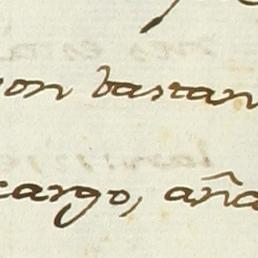 on bastan
cargo, aña